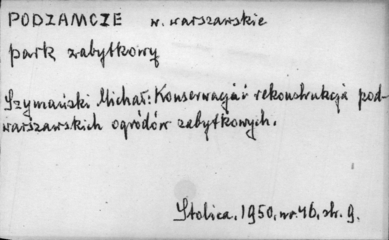 PODZAMCZE w. warszawskie
park zabytkowy
Szymański Michał: Konserwacja i rekonstrukcja pod-
warszawskich ogrodów zabytkowych.
Stolica, 1950, nr. 46, str. 9.